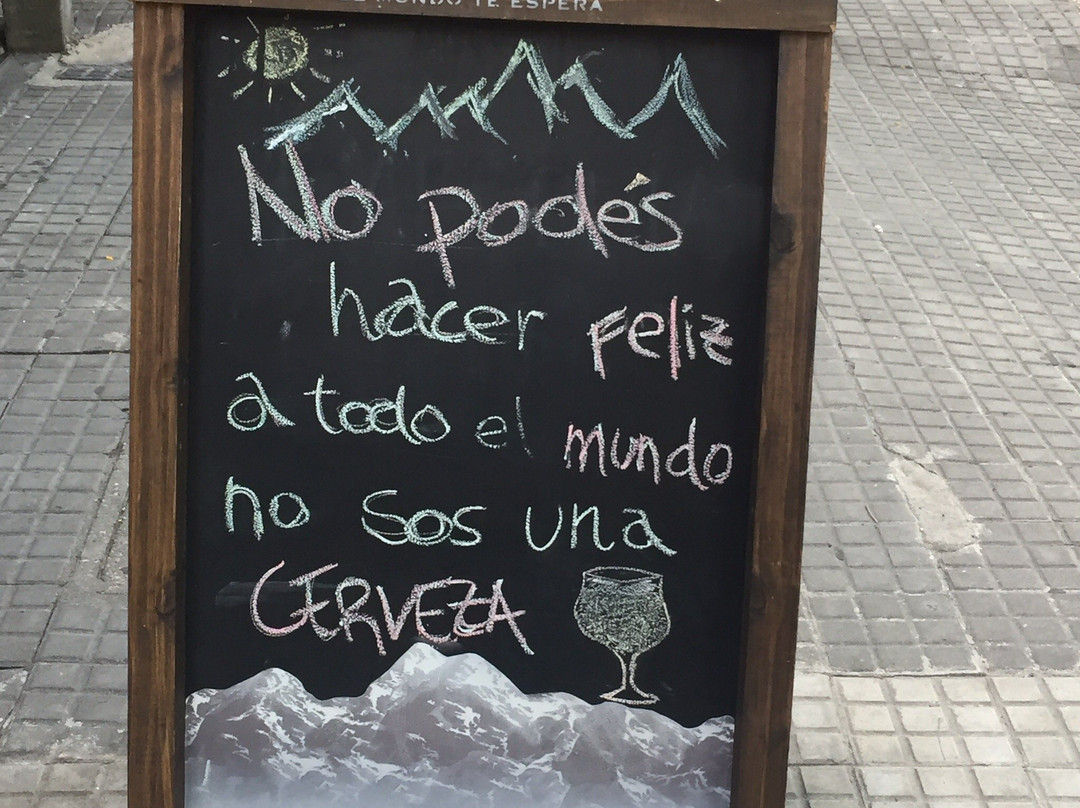 MUNDO TE ESPERA
No podés
hacer feliz
a todo el mundo
no sos una
CERVEZA